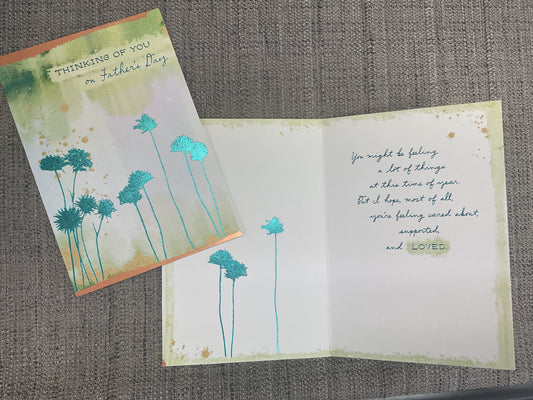 THINKING OF YOU
on Father's Day
You might be feeling
a lot of things
at this time of year.
But I hope, most of all,
you're feeling cared about,
supported,
and LOVED